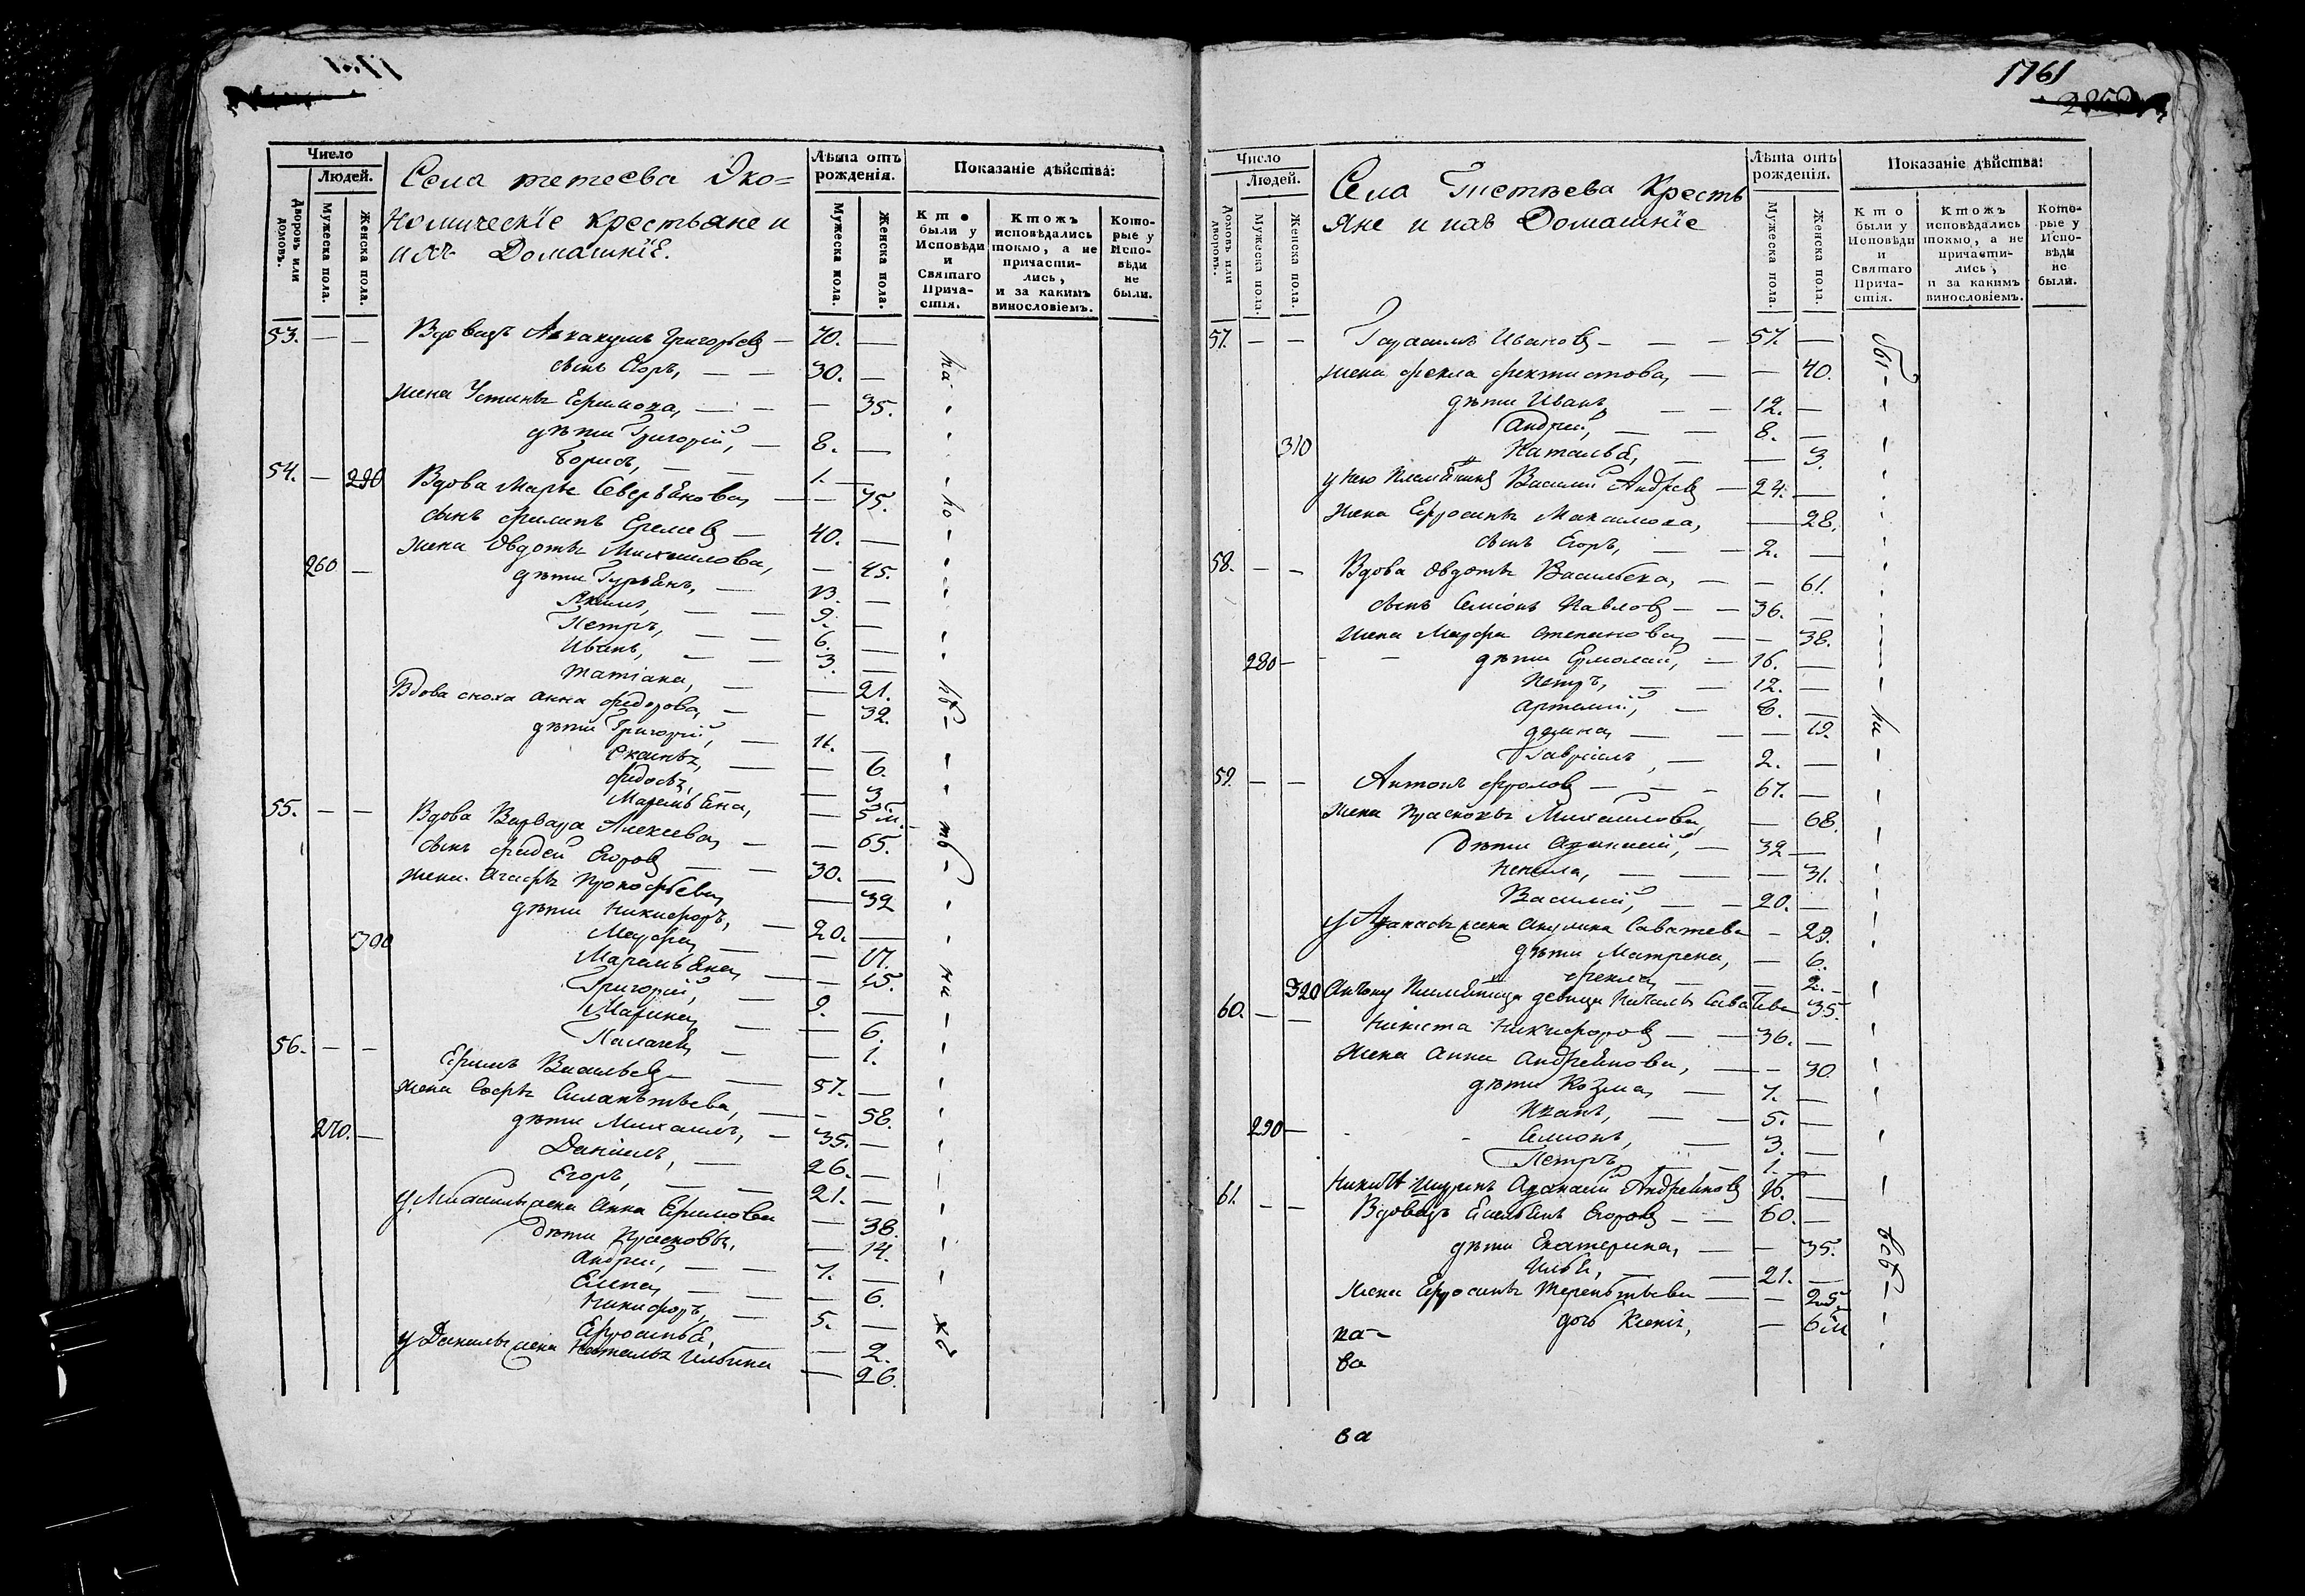 Число
Людей.
Дворовъ или домовъ.
Мужеска пола.
Женска пола.
Села тетеева Эко=
номическїе крестьяне и
ихъ Домашнїе.
Лѣта отъ рожденія.
Мужеска пола.
Женска пола.
Показаніе дѣйства:
Кто были у Исповѣди и Святаго Причастія.
Ктожъ исповѣдались токмо, а не причастились, и за какимъ винословіемъ.
Которые у Исповѣди не были.
53. — — Вдовецъ Аввакумъ Григорьевъ — 70. —
сынъ Егоръ, — — 30. —
жена Устинья Ефимова, — — — 35.
дѣти Григорій, — 8. —
Борисъ, — — 1. —
54. — 290 Вдова Марья Северьянова — — 75.
сынъ Филипъ — 40. —
жена Овдотья Михайлова, — 45.
260 — дѣти Гурьянъ, — 13. —
Якимъ, — — 9. —
Петръ, — — 6. —
Иванъ, — — 3. —
Татіана, — — 21.
Вдова сноха Анна Федорова, — — 32.
дѣти Григорій, — 11. —
— — 6.
Федосья, — — 3.
Маремьяна, — 5 м.
55. — — Вдова Варвара Алексеева — — 65.
сынъ Фадей Егоровъ — — 30. —
жена Агафья Прокофьева — 32
дѣти Никифоръ, — 20. —
Марфа — — 17.
300 Маремьяна — — 15.
Григорій, — 9. —
Марина — — 6.
— — 1.
56. — — Ефимъ Васильевъ — — 57. —
жена Софья Силантьева, — — 58.
270. — дѣти Михаилъ, — 35. —
Даніилъ, — 26. —
Егоръ, — — 21. —
у Михаилы жена Анна Ефимова — 38.
дѣти Прасковья, — 14.
Андрей, — — 7. —
Елена — — — 6.
Никифоръ, — 5. —
Ефросинья, — 2.
у Данилы жена Наталья Ильина — 26.
1761
Число
Людей.
Домовъ или дворовъ.
Мужеска пола.
Женска пола.
Села Тистѣева Кресть
яне и ихъ Домашнїе
Лѣта отъ рожденія.
Мужеска пола.
Женска пола.
Показаніе дѣйства:
Кто были у Исповѣди и Святаго Причастія.
Ктожъ исповѣдались токмо, а не причастились, и за какимъ винословіемъ.
Которые у Исповѣди не были.
57. — — Герасимъ Ивановъ — — — 57. —
жена Фекла Фектистова, — — 40.
дѣти Иванъ — — 12. —
Андрей, — — 8. —
310 Наталья, — — 3.
у него племянникъ Василій Андреевъ — 24. —
жена Ефросинья Максимова, — 28.
сынъ Егоръ, — — 2. —
58. — — Вдова Овдотья Васильева, — — 61.
сынъ Семіонъ Павловъ — — 36. —
жена Марфа Степанова — — 38.
280 — дѣти Ермолай, — 16. —
Петръ, — — 12. —
Артемій, — 8. —
домна — — — 19.
Гавріилъ, — 2. —
59. — — Антонъ Фроловъ — — — 67. —
жена Прасковья Михайлова, — 68.
Дѣти Афанасій, — 32 —
Ненила, — — — 31.
Василій, — — 20. —
у Афанасья жена Акулина Саватеева — 29.
дѣти Матрена, — 6.
Фекла — — 2.
320 девица Наталья 35.
60. — — Никита Никифоровъ — — 36. —
жена Анна Андреянова, — — 30.
дѣти Козма — 7. —
Иванъ, — — 5. —
290 — Семіонъ, — 3. —
Петръ, — — 1. —
Никиты шуринъ Афанасій Андреяновъ 26. —
61. — — Вдовецъ Емельянъ Егоровъ — — 60. —
дѣти Екатерина, — — 35.
Илья, — — 21. —
жена Ефросинья Терентьева — — 25.
дочь Ксенія, — 6 м
ка-
ва
ва